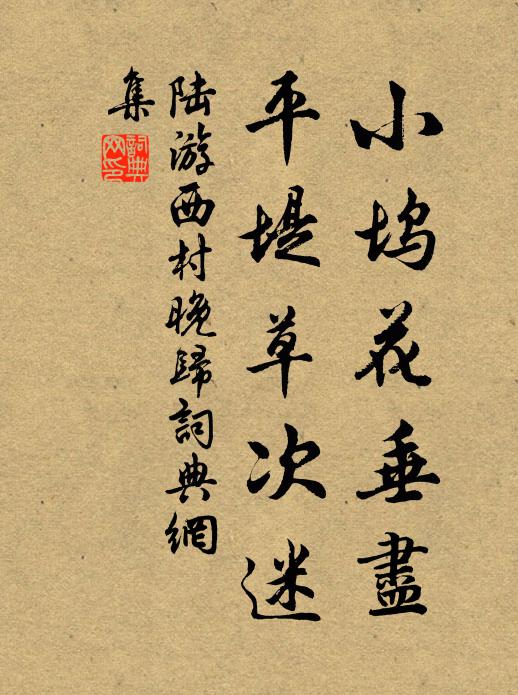 小塢花垂盡
平堤草次迷
陆游西村晚歸詞典網
集
詞典
网印